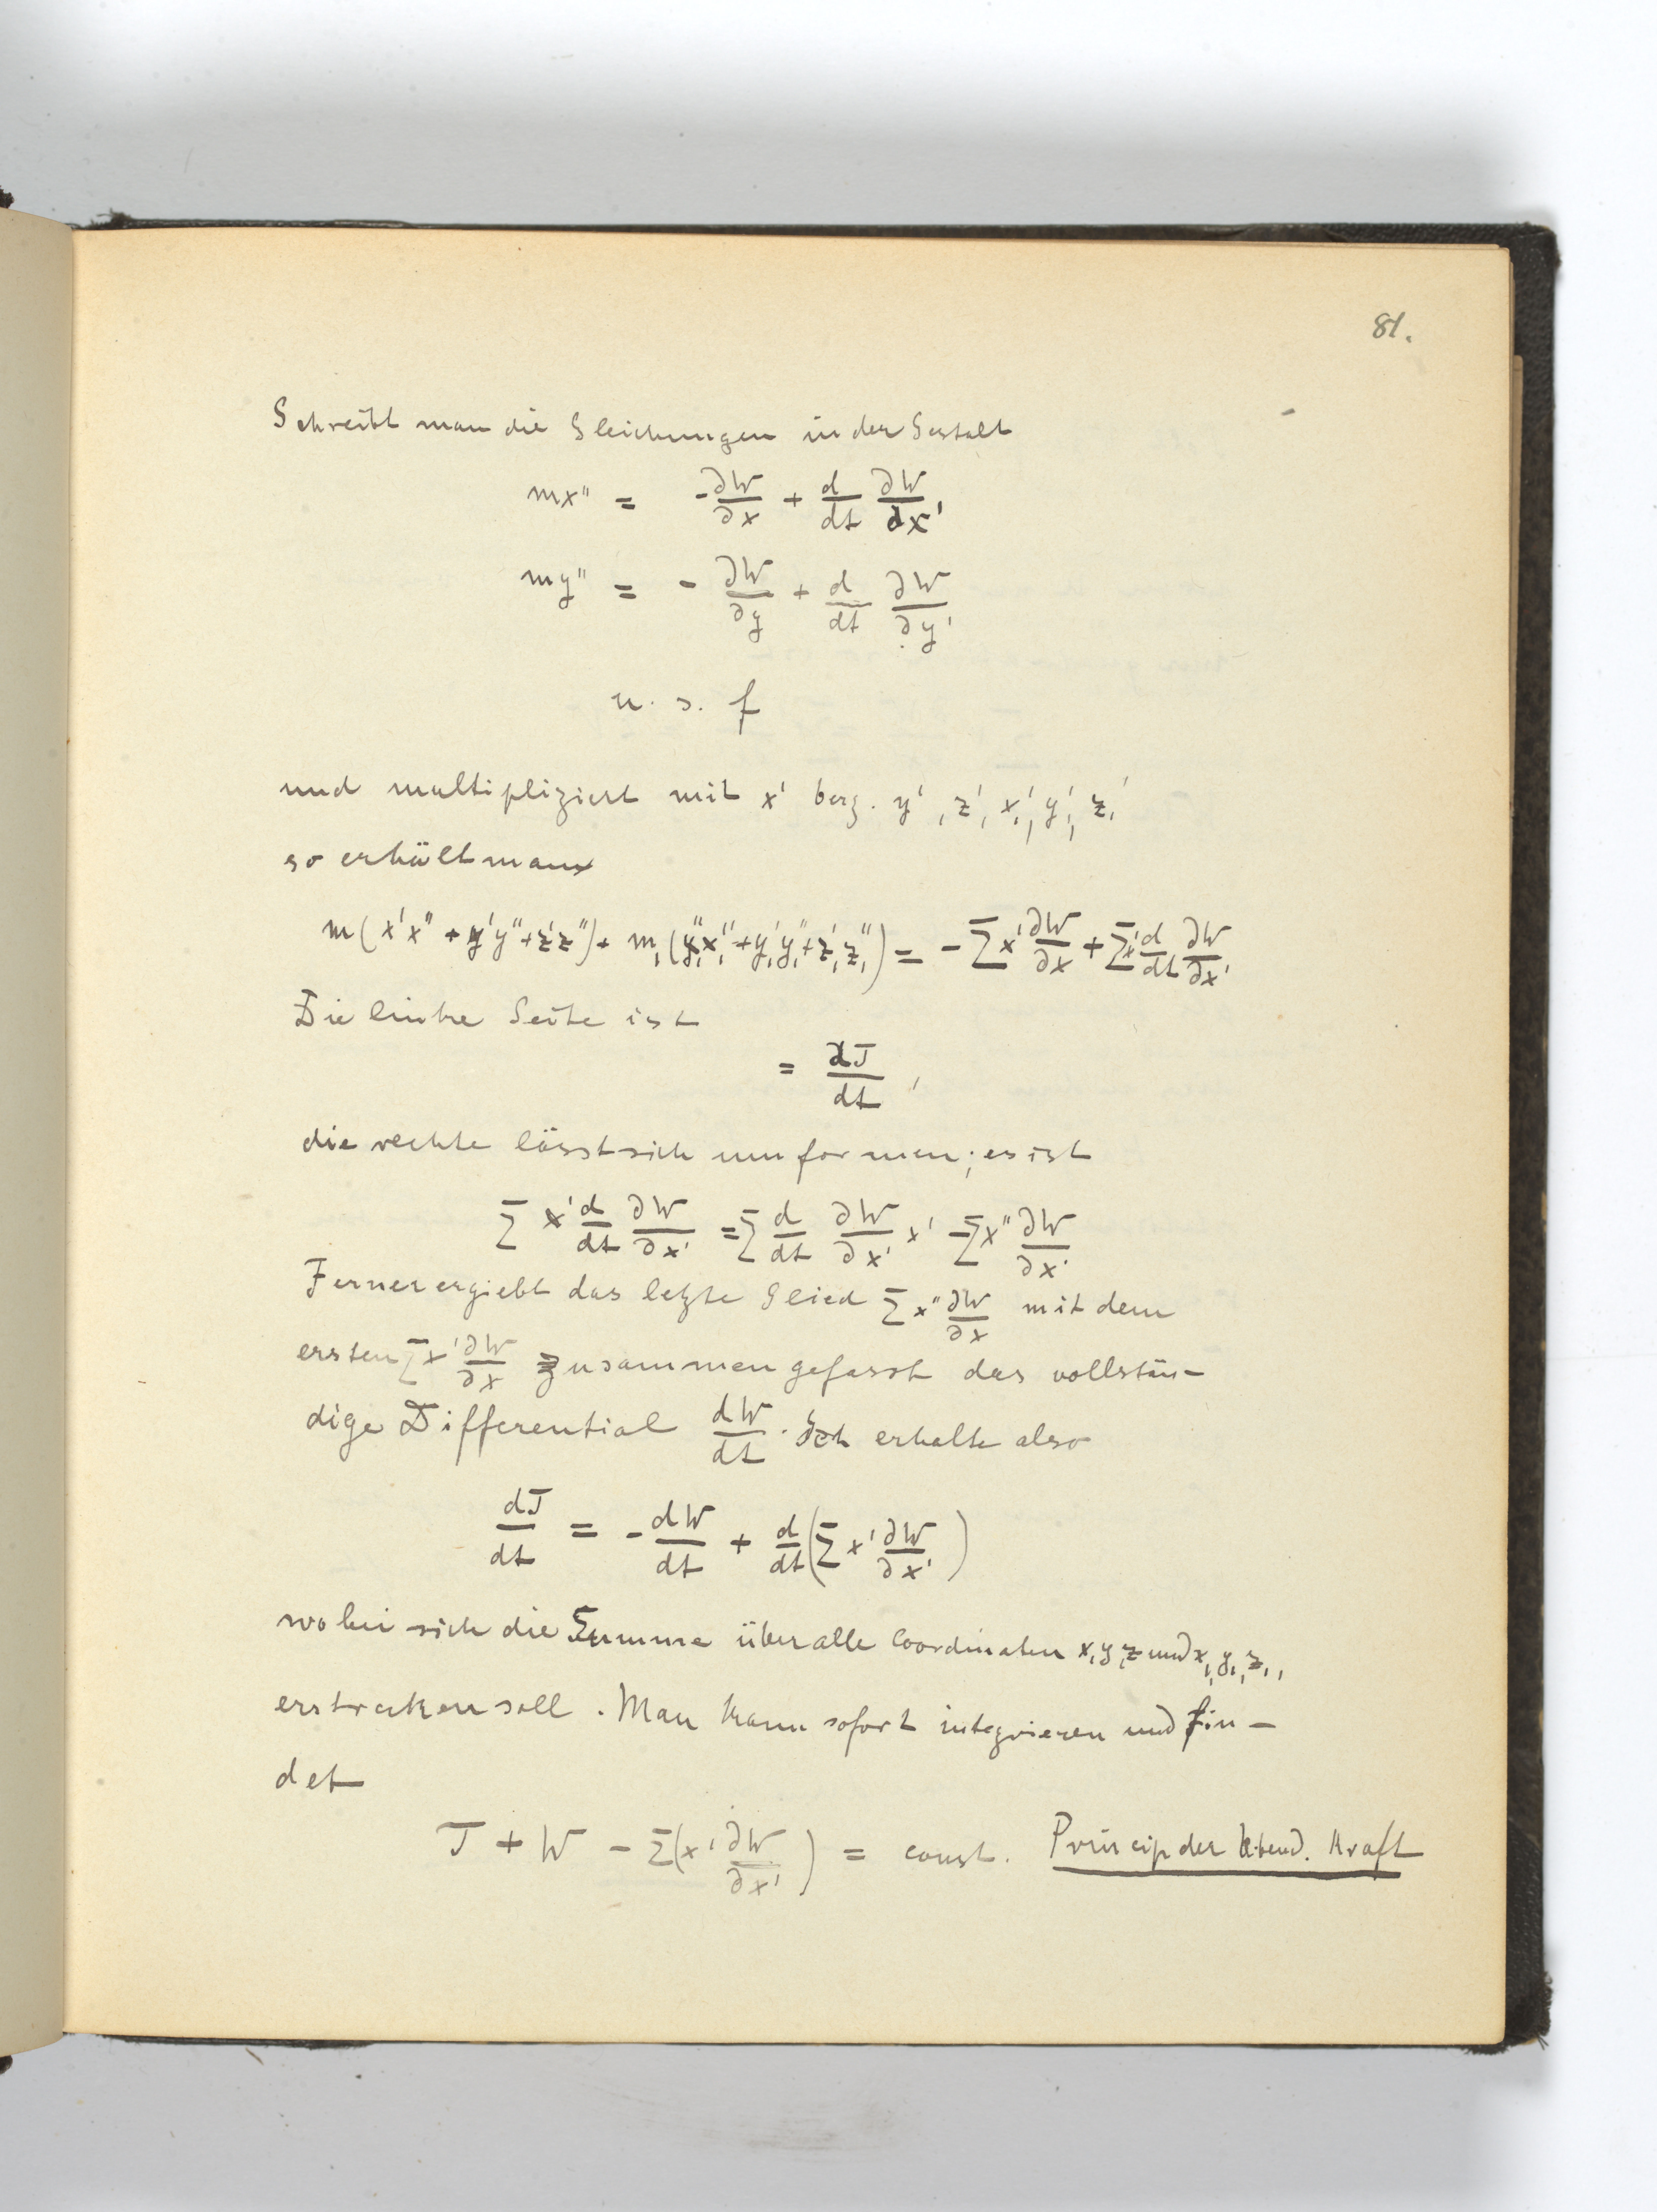 81.
Schreibt man die Gleichungen in der Gestalt
mx'' = -∂W/∂x + d/dt ∂W/∂x'
my'' = - ∂W/∂y + d/dt ∂W/∂y'
u. s. f
und multipliziert mit x' bezg. y', z', x₁', y₁', z₁'
so erhält man
m(x'x'' + y'y'' + z'z'') + m₁(x₁'x₁'' + y₁'y₁'' + z₁'z₁'') = - Σx' ∂W/∂x + Σx' d/dt ∂W/∂x'
Die linke Seite ist
= dT/dt,
die rechte lässt sich umformen; es ist
Σ x' d/dt ∂W/∂x' = Σ d/dt ∂W/∂x' x' - Σx'' ∂W/∂x'
Ferner ergiebt das letzte Glied Σ x'' ∂W/∂x mit dem
ersten Σx' ∂W/∂x zusammengefasst das vollstän-
dige Differential dW/dt. Ich erhalte also
dT/dt = - dW/dt + d/dt (Σ x' ∂W/∂x')
wobei sich die Summe über alle Coordinaten x, y, z und x₁, y₁, z₁,
erstrecken soll. Man kann sofort integrieren und fin-
det
T + W - Σ(x' ∂W/∂x') = const. Princip der lebend. Kraft